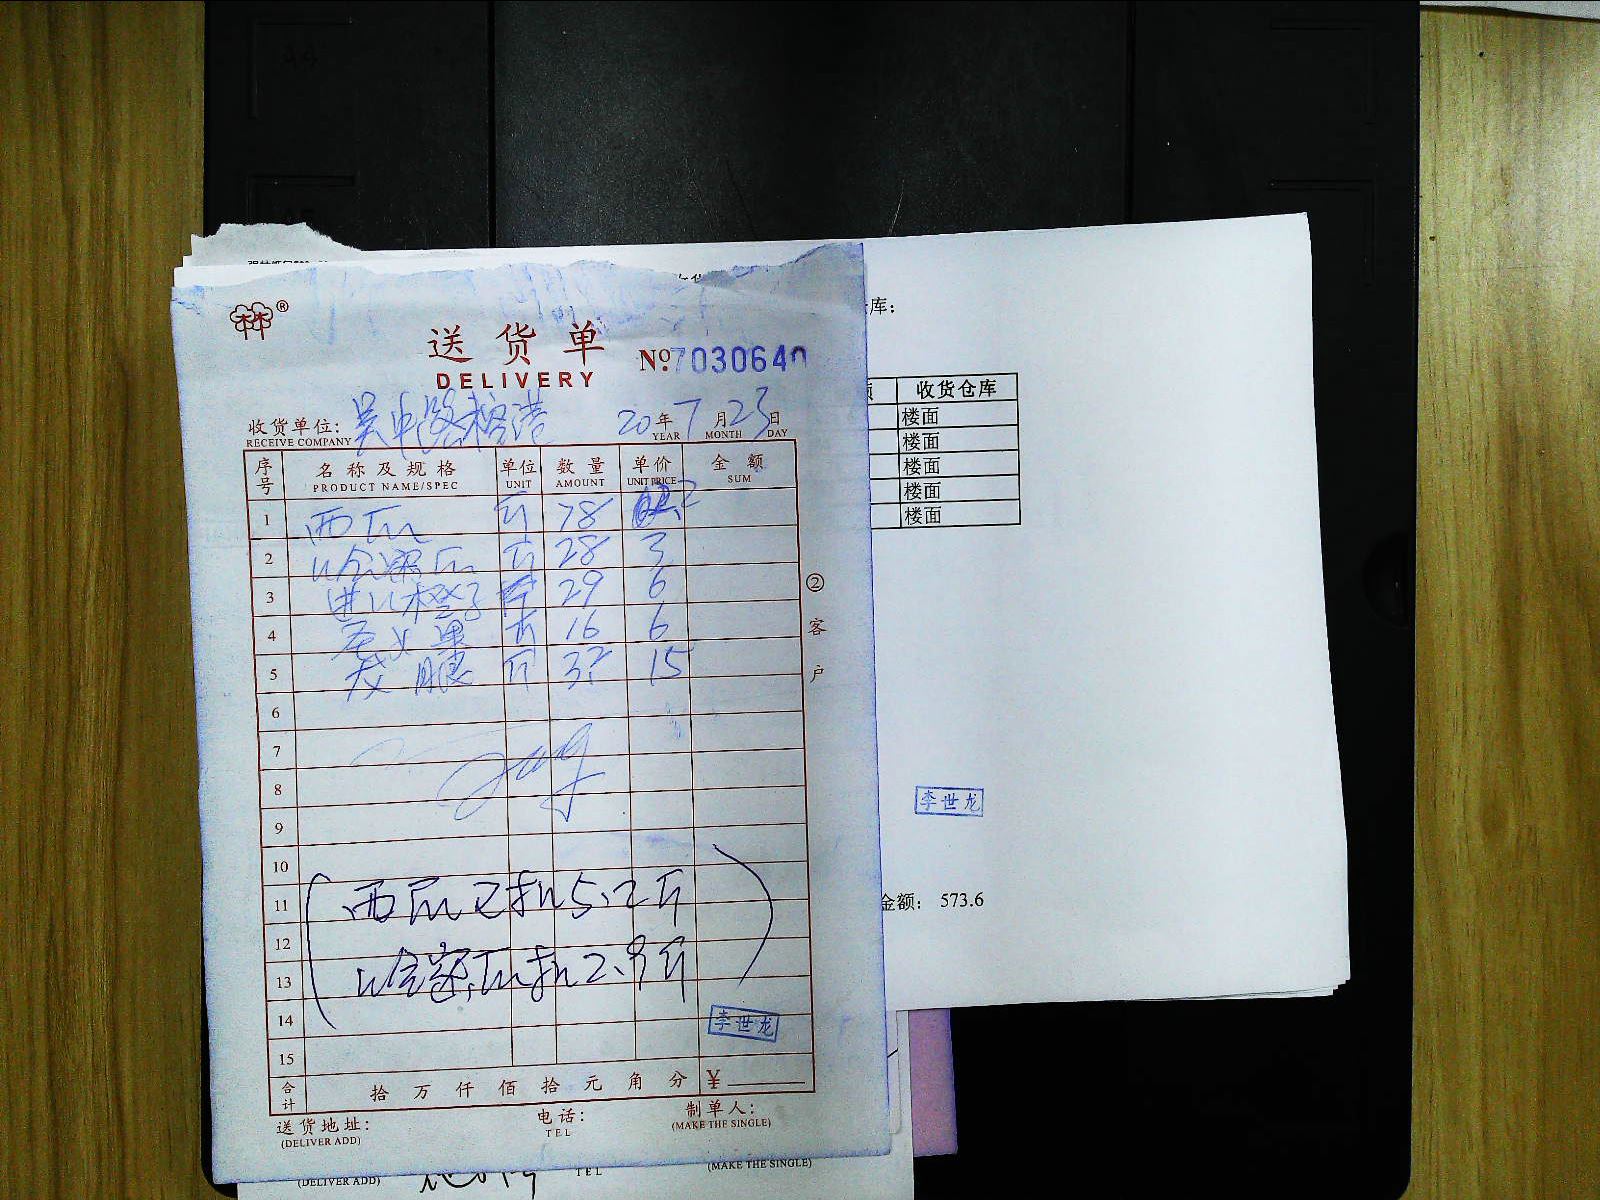 林®
送货单
DELIVERY
№7030640
收货单位: 吴中路榕港 20年7月23日
RECEIVE COMPANY YEAR MONTH DAY
序号 名称及规格 单位 数量 单价 金额
PRODUCT NAME/SPEC UNIT AMOUNT UNIT PRICE SUM
1 西瓜 斤 78
2 哈密瓜 斤 28 3
3 进口橙子 斤 29 6
4 火果 斤 16 6
5 龙眼 斤 15
6
7
8
9
10
11 西瓜已扣5.2斤
12
13 哈密瓜扣2.9斤
14
李世龙
15
合计 拾万仟佰拾元角分 ¥
送货地址: 电话: 制单人:
(DELIVER ADD) TEL (MAKE THE SINGLE)
② 客户
(DELIVER ADD) TEL (MAKE THE SINGLE)
库:
收货仓库
楼面
楼面
楼面
楼面
楼面
李世龙
金额: 573.6